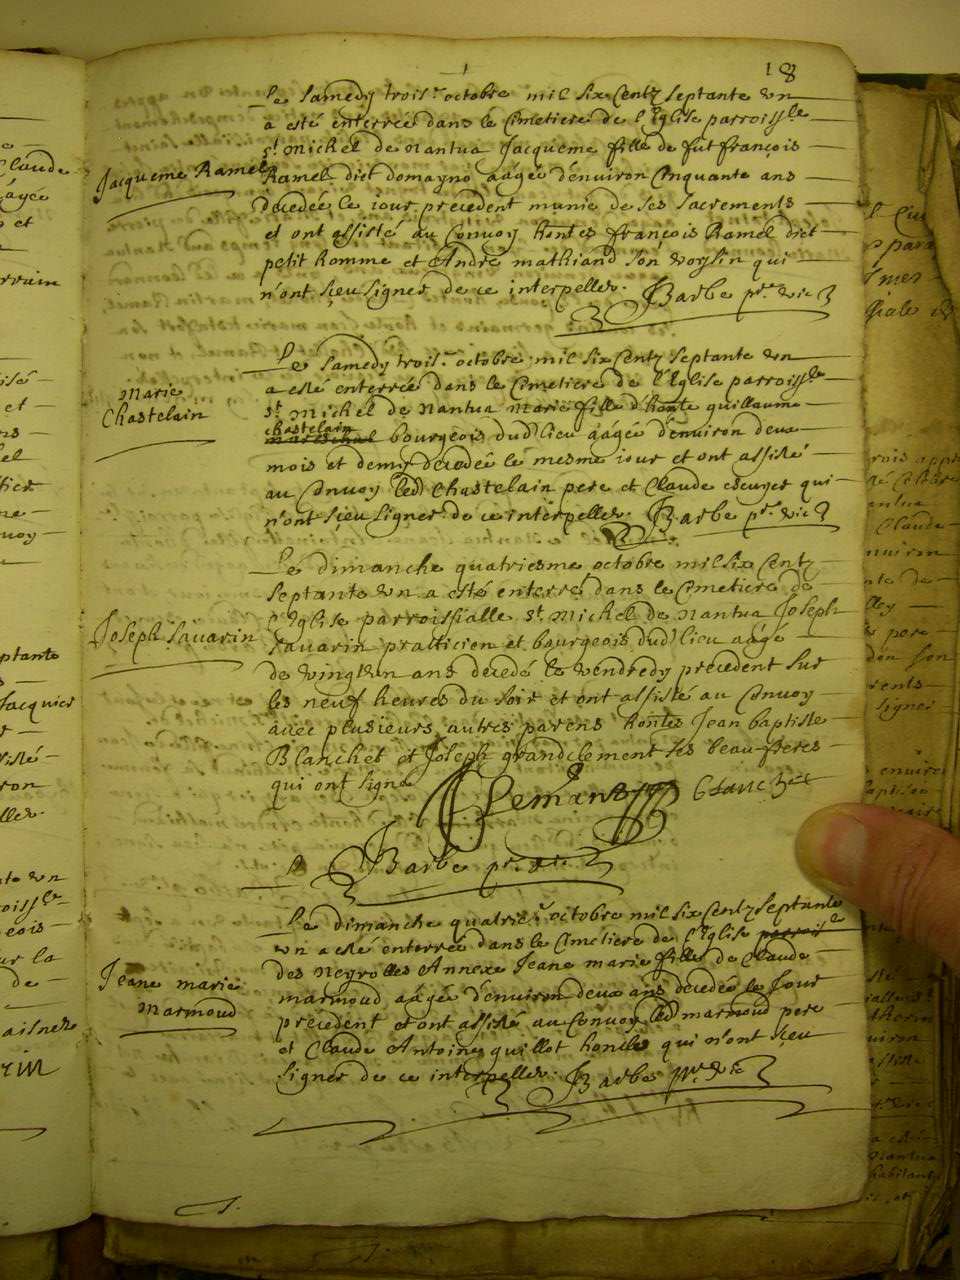 18
Le samedy trois.e octobre mil six Centz septante un
a esté enterrée dans le Cimetiere de l'Eglise parroiss.le
S.t Michel de Nantua Jacqueme fille de fut françois
Jacqueme Ramel
Ramel dict domayno aagée d'environ Cinquante ans
decedée le iour precedent munie de ses sacrements
et ont assisté au Convoy hontes françois Ramel dict
petit homme et André mathiand son voysin qui
n'ont sçeu signer de ce interpellez. Barbe pr. vic.
Le samedy trois.e octobre mil six Centz septante un
a esté enterrée dans le Cimetiere de l'Eglise parroiss.le
Marie
Chastelain
S.t Michel de Nantua Marie fille d'honte guillaume
chastelain
mareschal bourgeois dud lieu aagée d'environ deux
mois et demy decedée le mesme iour et ont assisté
au Convoy led Chastelain pere et Claude escuyer qui
n'ont sçeu signer de ce interpellez. Barbe pr. vic.
Le dimanche quatriesme octobre mil six Centz
septante un a esté enterré dans le Cimetiere de
l'Eglise parroissialle S.t Michel de Nantua Joseph
Joseph Savarin
Savarin praticien et bourgeois dud lieu aagé
de vingt un ans decedé le vendredy precedent sur
les neuf heures du soir et ont assisté au Convoy
avec plusieurs autres parens hontes Jean baptiste
Blanchet et Joseph grandclement ses beau-freres
qui ont signé
Blanchet
Barbe pr. vic.
Le dimanche quatrie.e octobre mil six Centz septante
un a esté enterrée dans le Cimetiere de l'Eglise parroiss.le
des Neyrolles Annexe Jeane marie fille de Claude
Jeane marie
Marmoud
marmoud aagée d'environ deux ans decedée le Jour
precedent et ont assisté au Convoy led marmoud pere
et Claude Antoine guillot hontes qui n'ont sçeu
signer de ce interpellez. Barbe pr. vic.